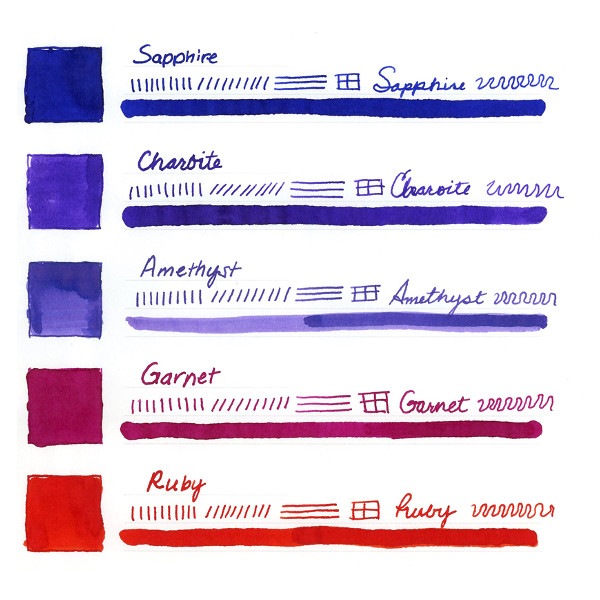 Sapphire
Sapphire
Charoite
Charoite
Amethyst
Amethyst
Garnet
Garnet
Ruby
Ruby